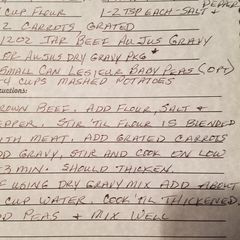 CUP FLOUR 1-2 TSP EACH - SALT &
PEPPER
2 CARROTS, GRATED
12 OZ JAR BEEF AU JUS GRAVY
OR AU JUS DRY GRAVY PKG *
SMALL CAN LESIEUR BABY PEAS (OPT)
4 CUPS MASHED POTATOES
uctions:
ROWN BEEF. ADD FLOUR, SALT &
EPPER. STIR 'TIL FLOUR IS BLENDED
ITH MEAT. ADD GRATED CARROTS
DD GRAVY, STIR AND COOK ON LOW
3 MIN. SHOULD THICKEN.
F USING DRY GRAVY MIX ADD ABOUT
CUP WATER. COOK 'TIL THICKENED
DD PEAS & MIX WELL